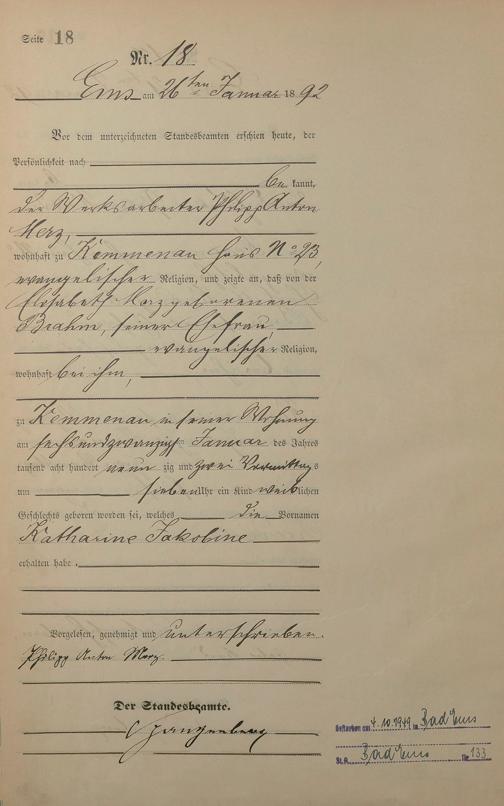 Seite 18
Nr. 18
Ems am 26ten Januar 1892
Vor dem unterzeichneten Standesbeamten erschien heute, der
Persönlichkeit nach
be kannt,
der Werksarbeiter Philipp Anton
Merz,
wohnhaft zu Kemmenau Haus No 23,
evangelischer Religion, und zeigte an, daß von der
Elisabeth Merz geborenen
Brahm, seiner Ehefrau,
evangelischer Religion,
wohnhaft bei ihm,
zu Kemmenau in seiner Wohnung
am sechsundzwanzigst Januar des Jahres
tausend acht hundert neun zig und zwei Vormittags
um sieben Uhr ein Kind weiblichen
Geschlechts geboren worden sei, welches die Vornamen
Katharine Jakobine
erhalten habe.
Vorgelesen, genehmigt und unterschrieben.
Philipp Anton Merz
Der Standesbeamte.
Gestorben am 4.10.1949 in Bad Ems
St.A. Bad Ems Nr. 133